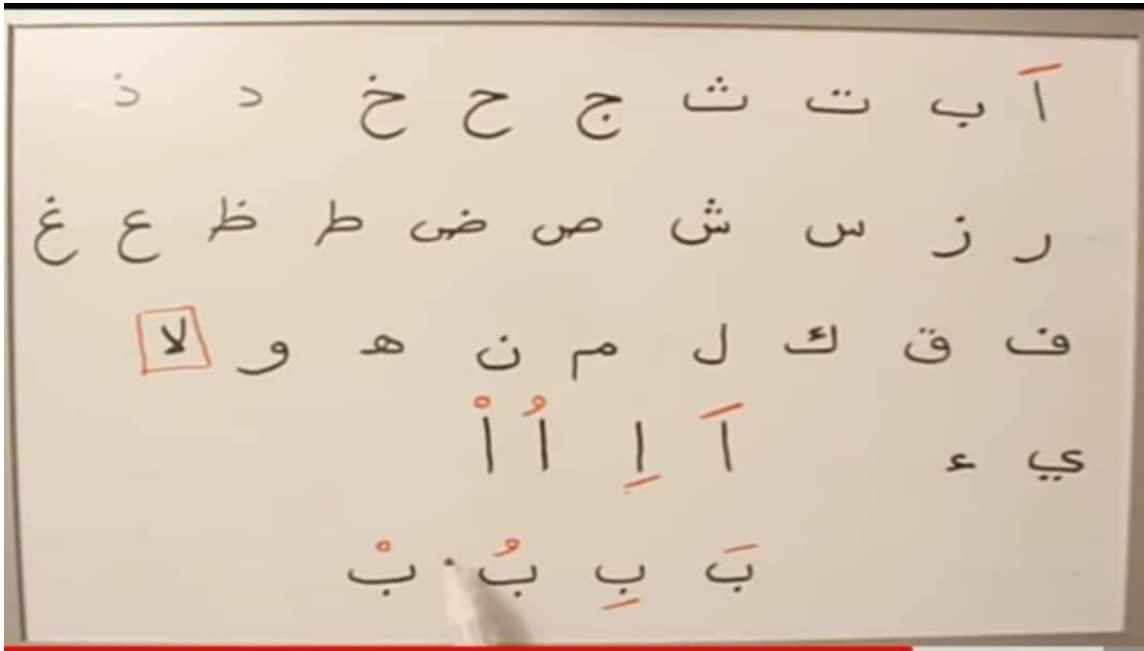 اَ ب ت ث ج ح خ د ذ
ر ز س ش ص ض ط ظ ع غ
ف ق ك ل م ن ه و لا
ي ء اَ اِ اُ اْ
بَ بِ بُ بْ